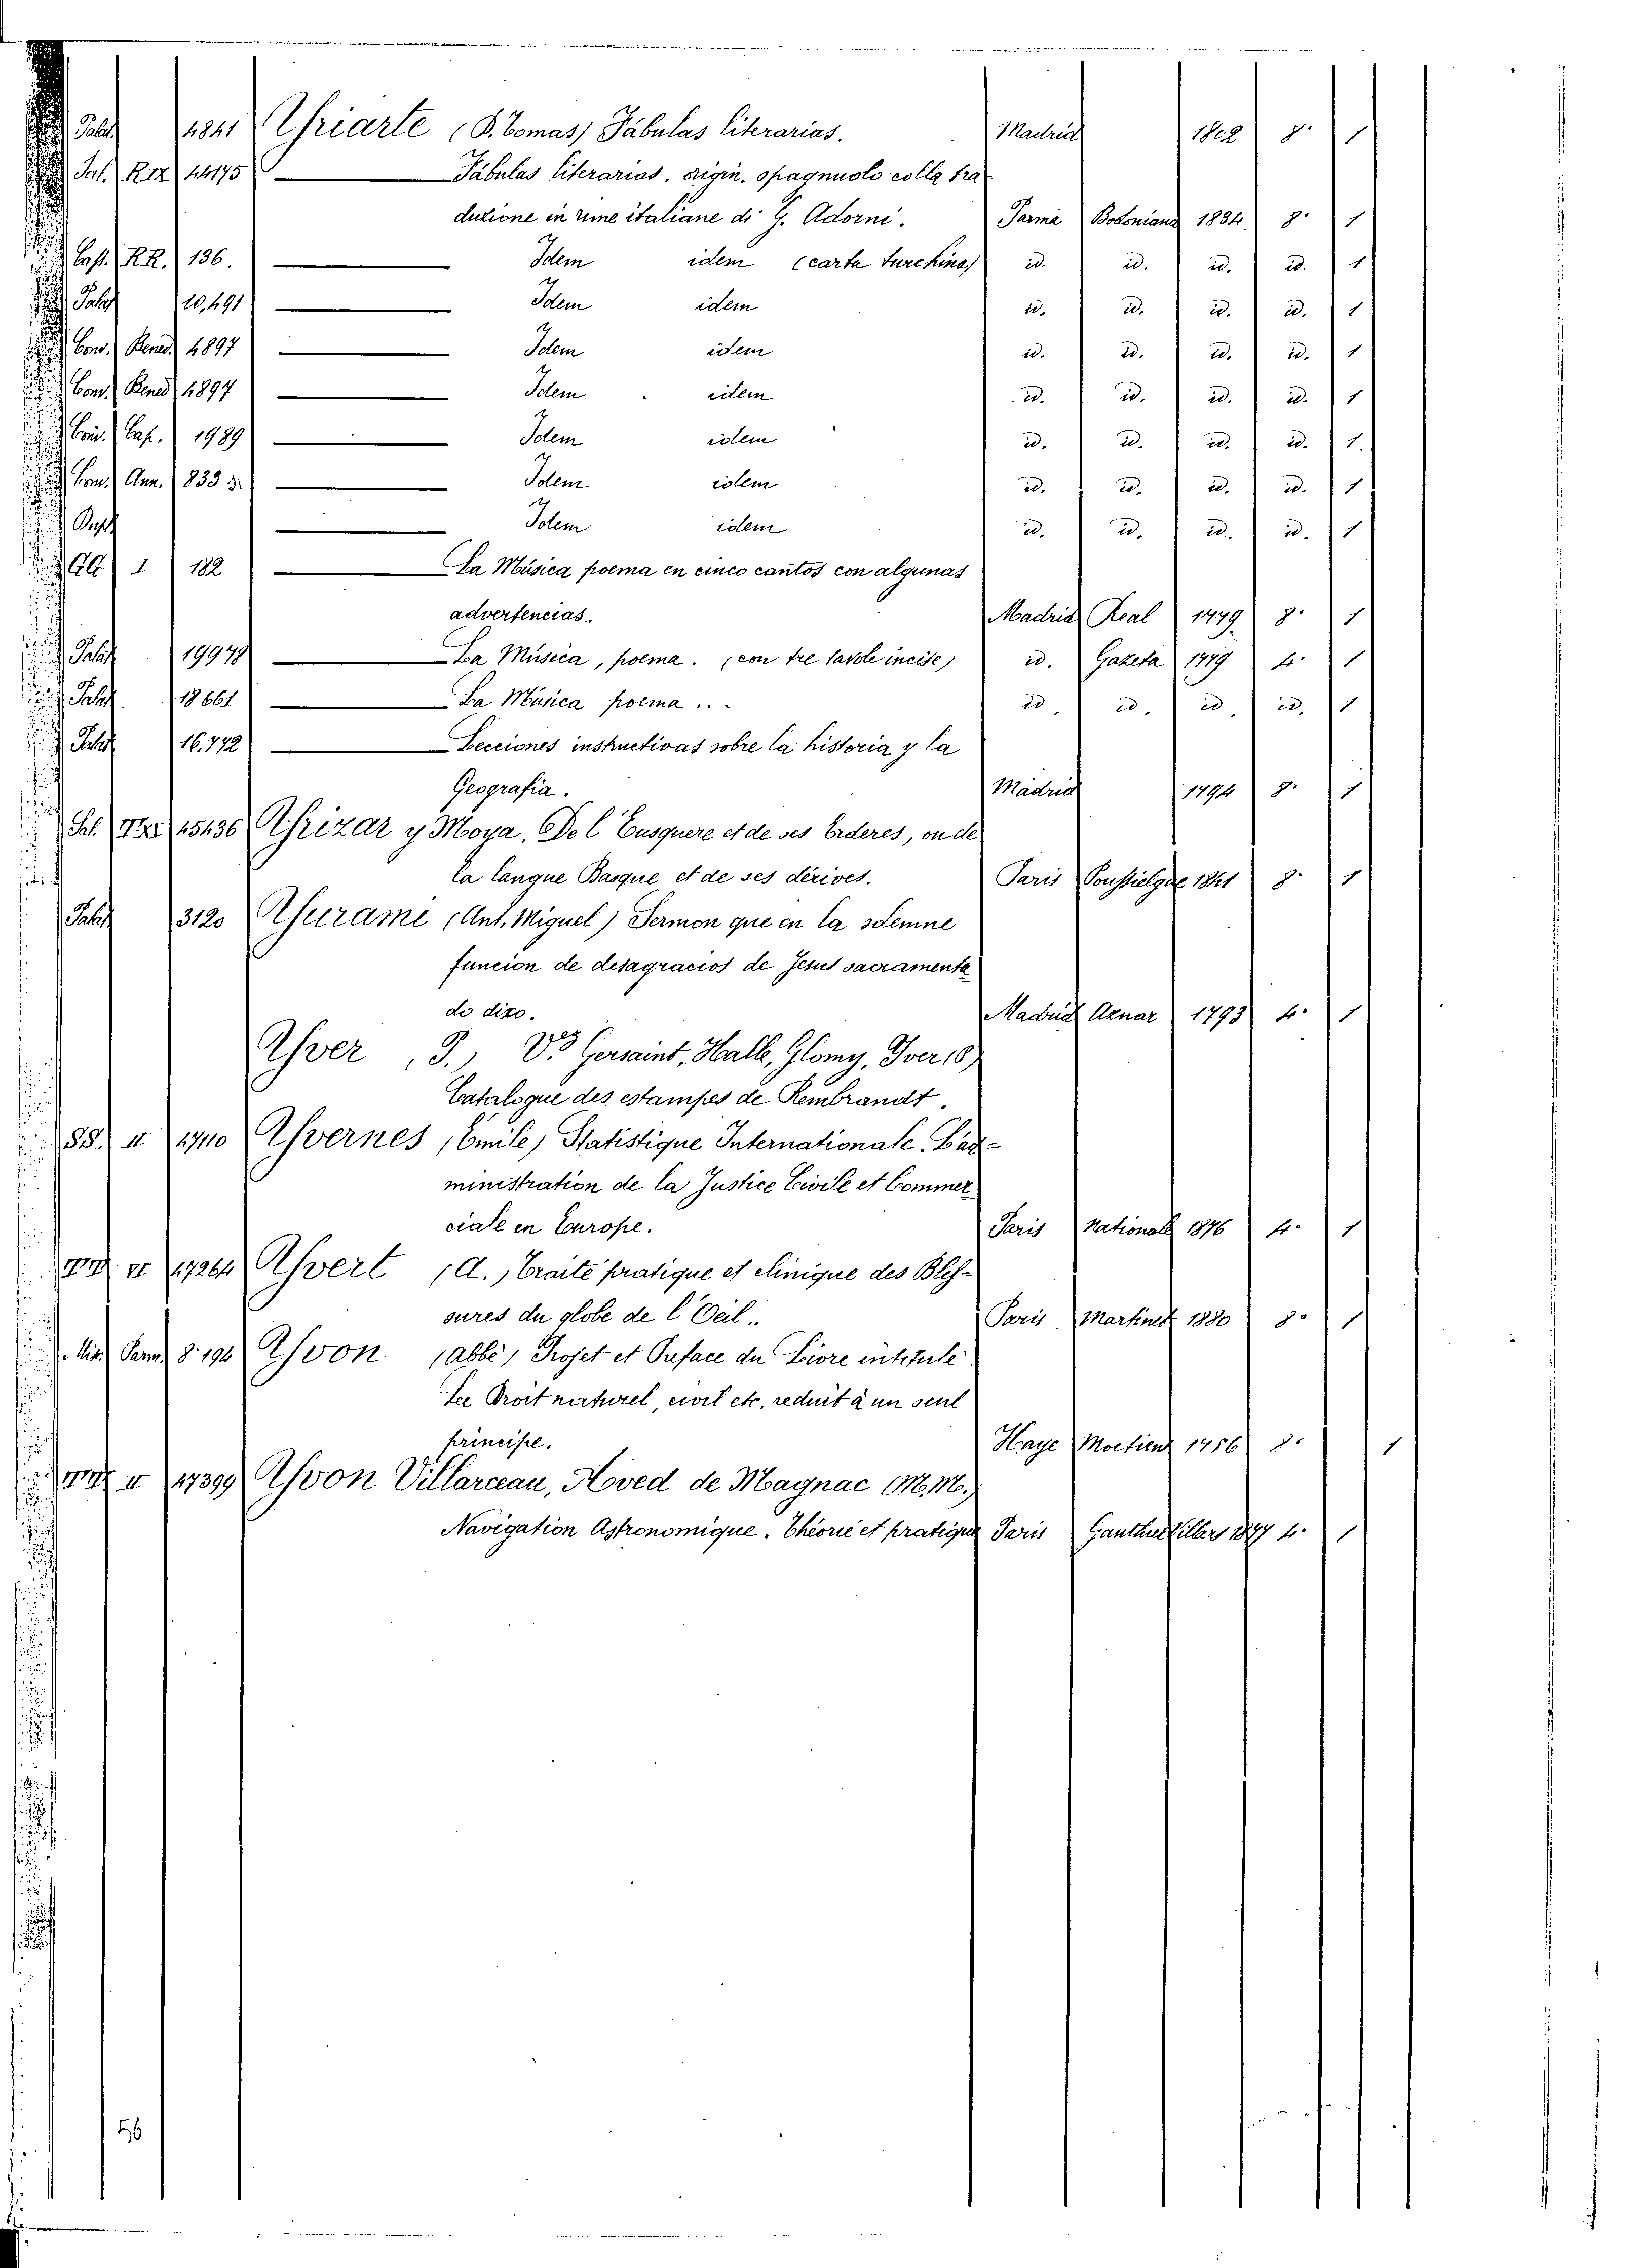 Palat 4841 Yriarte (D. Tomas) Fabulas literarias. Madrid 1802 8° 1
Sal. RIX 44175 Fabulas literarias, origin. spagnuolo colla tra
duzione in rime italiane di G. Adorni. Parma Bodoniana 1834. 8° 1
Cass. RR. 136. Idem idem (carta turchina) id. id. id. id. 1
Palat 10,491 Idem idem id. id. id. id. 1
Cons. Bened. 4897 Idem idem id. id. id. id. 1
Cons. Bened. 4897 Idem idem id. id. id. id. 1
Con. Cap. 1989 Idem idem id. id. id. id. 1.
Con. Ann. 833 3. Idem idem id. id. id. id. 1
Idem idem id. id. id. id. 1
GG I 182 La Música poema en cinco cantos con algunas
advertencias. Madrid Real 1779 8° 1
Palat 19978 La Música, poema. (con tre tavole incise) id. Gazeta 1779 4° 1
Palat. 18661 La Musica poema... id. id. id. id. 1
Palat 16,772 Lecciones instructivas sobre la historia y la
Geografia. Madrid 1794 8° 1
Sal. 45436 Yrizar y Moya, De l'Eusquere et de ses Erderes, on de
la langue Basque et de ses dérives. Paris Poussielgue 1841 8° 1
Palat 3120 Yurami (Ant. Miguel) Sermon que en la solemne
funcion de desagracios de Jesus sacramenta
do dixo. Madrid Aznar 1793 4° 1
Yver (P.) Vs Gersaint, Halle, Glomy, Yver (P)
Catalogue des estampes de Rembrandt.
SS. II 17110 Yvernes (Emile) Statistique Internationale. L'ad-
ministration de la Justice Civile et Commer
ciale en Europe. Paris Nationale 1876 4° 1
VI 17264 Yvert (A.) Traité pratique et clinique des Bles-
sures du globe de l'Oeil.. Paris Martinet 1880 8° 1
Mis. Parm. 8° 194 Yvon (abbé) Projet et Preface du Livre intitulé
Le Droit naturel, civil etc. reduit à un seul
principe. Haye Moetiens 1756 8° 1
II 17399 Yvon Villarceau, Aved de Magnac (M.M.)
Navigation Astronomique. Théorie et pratique Paris Gauthier Villars 1877 4° 1
56